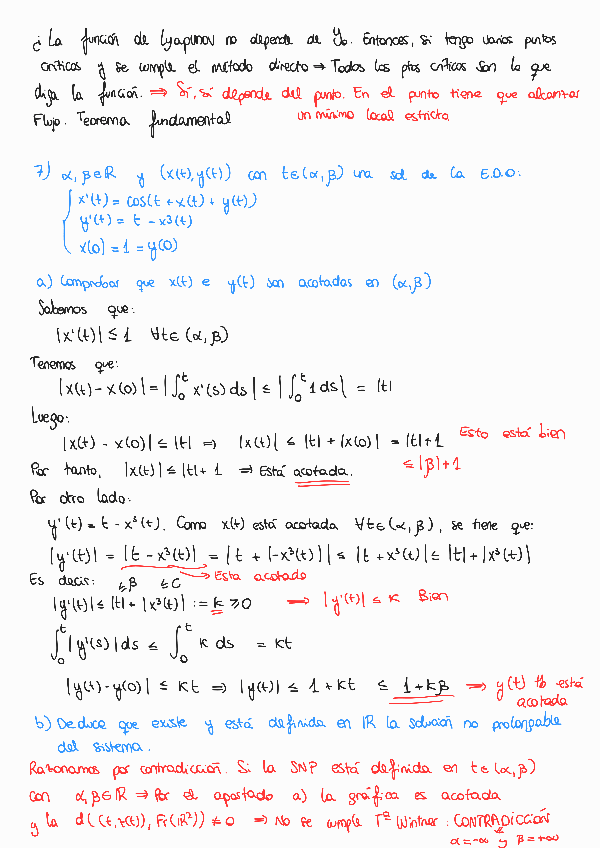 ¿ La función de Lyapunov no depende de y₀. Entonces, si tengo varios puntos
críticos y se cumple el método directo ⇒ Todos los ptos críticos son lo que
diga la función. ⇒ Sí, sí depende del punto. En el punto tiene que alcanzar
Flujo. Teorema fundamental un mínimo local estricto
7) α, β ∈ ℝ y (x(t), y(t)) con t ∈ (α, β) una sol de la E.D.O:
x'(t) = cos(t + x(t) + y(t))
y'(t) = t - x³(t)
x(0) = 1 = y(0)
a) Comprobar que x(t) e y(t) son acotadas en (α, β)
Sabemos que:
|x'(t)| ≤ 1 ∀t ∈ (α, β)
Tenemos que:
|x(t) - x(0)| = |∫₀ᵗ x'(s) ds| ≤ |∫₀ᵗ 1 ds| = |t|
Luego:
|x(t) - x(0)| ≤ |t| ⇒ |x(t)| ≤ |t| + |x(0)| = |t| + 1 Esto está bien
Por tanto, |x(t)| ≤ |t| + 1 ⇒ Está acotada. ≤ |β| + 1
Por otro lado:
y'(t) = t - x³(t). Como x(t) está acotada ∀t ∈ (α, β), se tiene que:
|y'(t)| = |t - x³(t)| = |t + (-x³(t))| ≤ |t + x³(t)| ≤ |t| + |x³(t)|
Es decir: ≤ β ≤ C → Esta acotado
|y'(t)| ≤ |t| + |x³(t)| := k ≥ 0 → |y'(t)| ≤ k Bien
∫₀ᵗ |y'(s)| ds ≤ ∫₀ᵗ k ds = kt
|y(t) - y(0)| ≤ kt ⇒ |y(t)| ≤ 1 + kt ≤ 1 + kβ → y(t) tb está
acotada
b) Deduce que existe y está definida en ℝ la solución no prolongable
del sistema.
Razonamos por contradicción. Si la SNP está definida en t ∈ (α, β)
con α, β ∈ ℝ ⇒ Por el apartado a) la gráfica es acotada
y la d((t, z(t)), Fr(ℝ²)) ≠ 0 ⇒ No se cumple Tª Wintner: CONTRADICCIÓN
α = -∞ y β = +∞